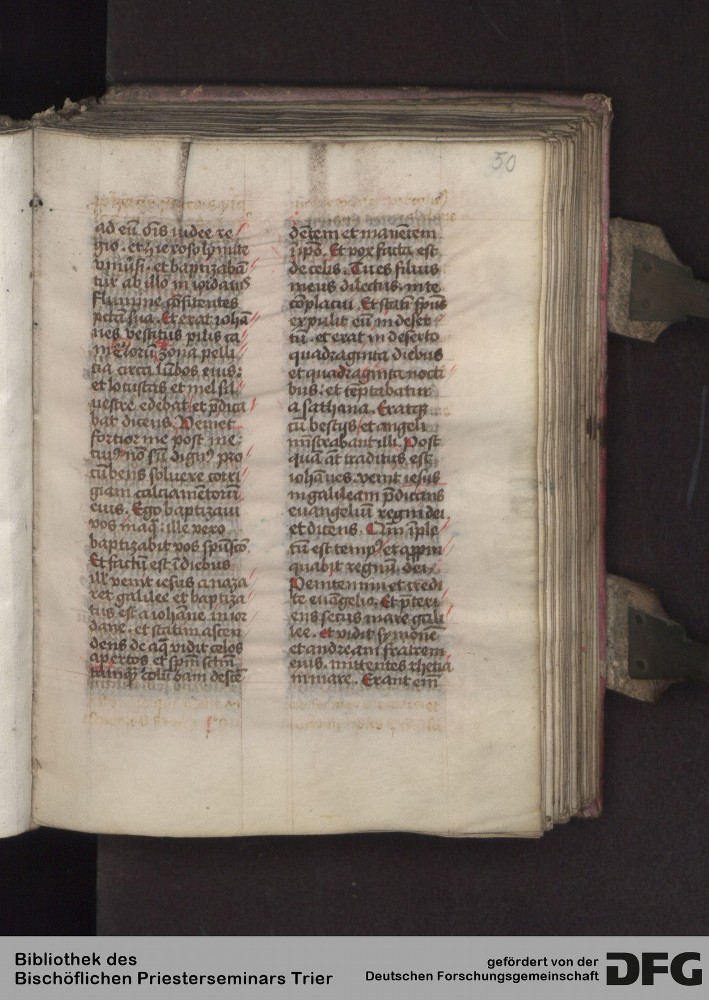 50
ad eū. oīs iudee re
gio. et hierosolymite
vniūsi. et baptizabā
tur ab illo in iordanis
flumine cōfitentes
pctā sua. Et erat iohā
nes vestitus pilis ca
melorū zona pelli
tia circa lūbos eius:
et locustas et mel sil
uestre edebat et p̄dica
bat dicens. Veniet
fortior me post me:
cui⁹ nō sū dign⁹ pro
cūbens soluere corri
giam calciamētorū
eius. Ego baptizaui
vos aqua: ille vero
baptizabit vos spūscō
Et factū est ī diebus
ill' venit iesus a naza
ret galilee et baptiza
tus est a iohāne in ior
dane. et statim ascen
dens de aq̄ vidit celos
apertos et spm̄ sctm̄
tamq̄ colūbam descē
dētem et manētem
ī ipō. Et vox facta est
de celis. Tu es filius
meus dilectus. in te
cōplacui. Et stati spūs
expulit eū in deser
tū. et erat in deserto
quadraginta diebus
et quadraginta nocti
bus: et tēptabatur
a sathana. Eratq̄
cū bestijs et angeli
mīstrabant illi. Post
quā āt traditus est
iohānes. venit iesus
in galileam p̄dicans
euangeliū regni dei
et dicens. Qm̄ īple
tū est temp⁹ et appin
quabit regnū dei.
Penitemini et credi
te euāgelio. Et p̄teri
ens secus mare gali
lee. et vidit symonē
et andream fratrem
eius. mittentes rhetia
in mare. Erant eīm
Bibliothek des
Bischöflichen Priesterseminars Trier
gefördert von der
Deutschen Forschungsgemeinschaft
DFG